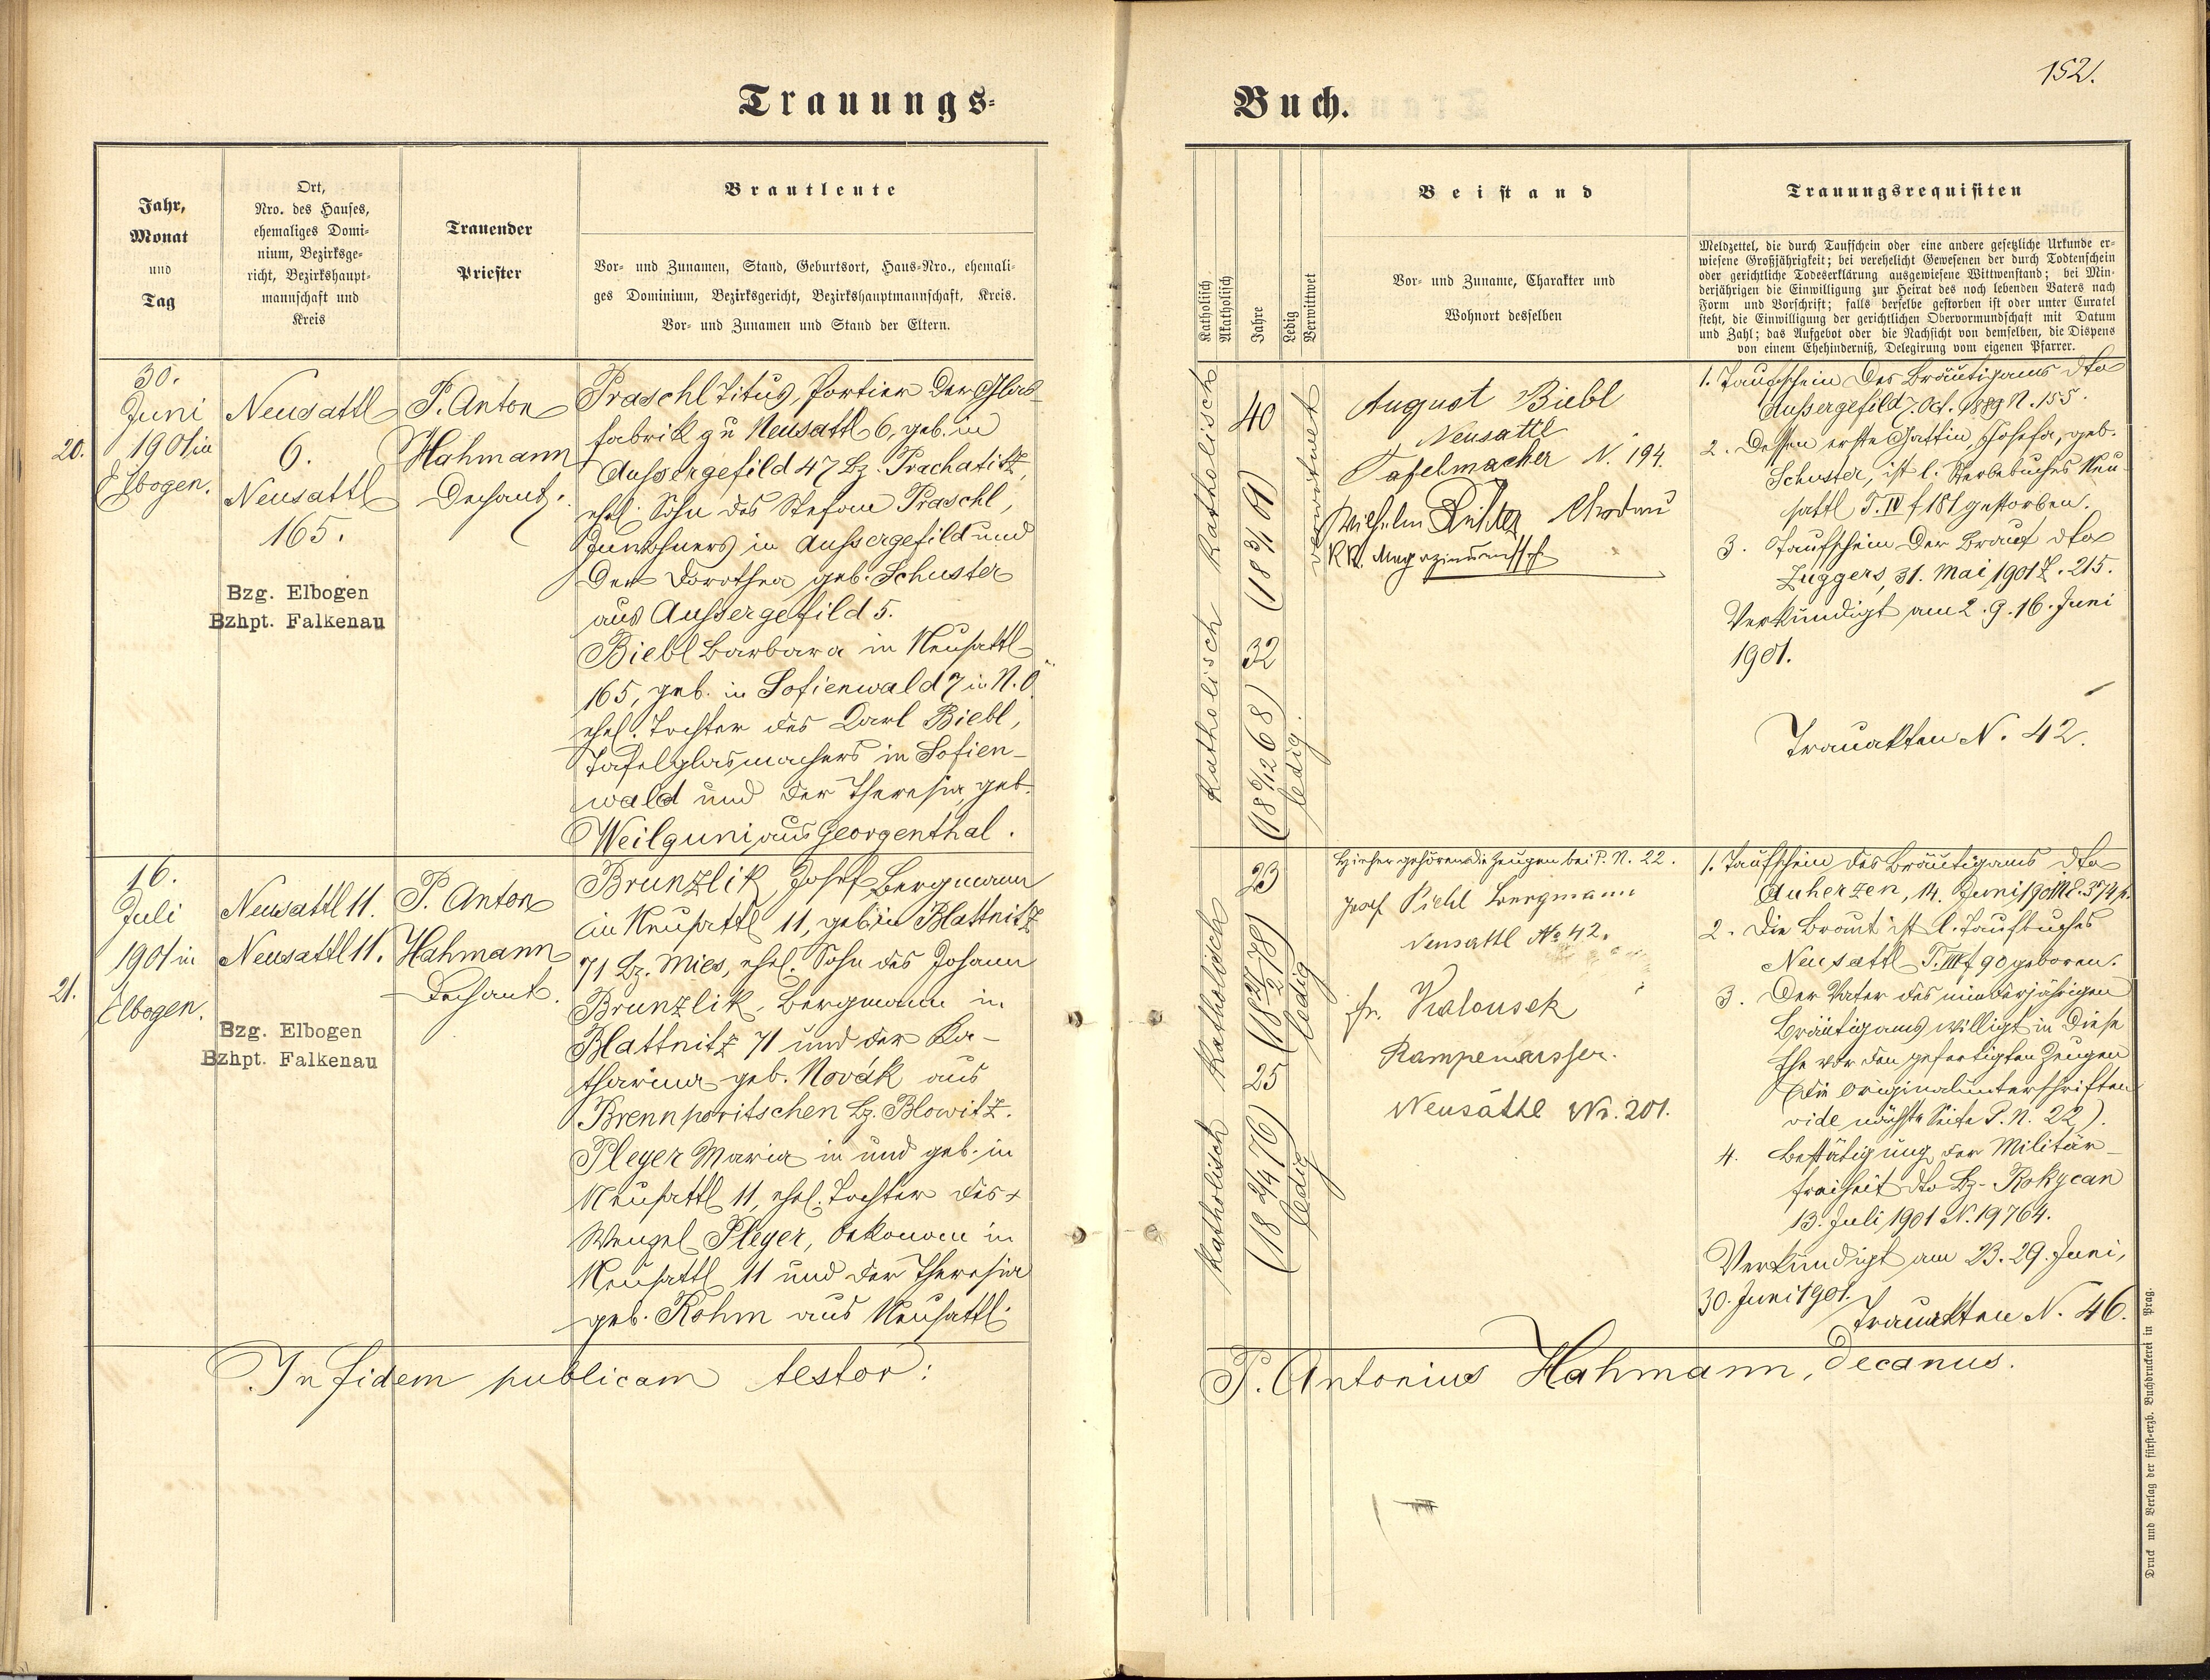 152.
Trauungs-
Buch.
Jahr,
Monat
und
Tag
Ort,
Nro. des Hauses,
ehemaliges Domi-
nium, Bezirksge-
richt, Bezirkshaupt-
mannschaft und
Kreis
Trauender
Priester
Brautleute
Vor- und Zunamen, Stand, Geburtsort, Haus-Nro., ehemali-
ges Dominium, Bezirksgericht, Bezirkshauptmannschaft, Kreis.
Vor- und Zunamen und Stand der Eltern.
Katholisch
Akatholisch
Jahre
Ledig
Verwittwet
Beistand
Vor- und Zuname, Charakter und
Wohnort desselben
Trauungsrequisiten
Meldzettel, die durch Taufschein oder eine andere gesetzliche Urkunde er-
wiesene Großjährigkeit; bei verehelicht Gewesenen der durch Todtenschein
oder gerichtliche Todeserklärung ausgewiesene Wittwenstand; bei Min-
derjährigen die Einwilligung zur Heirat des noch lebenden Vaters nach
Form und Vorschrift; falls derselbe gestorben ist oder unter Curatel
steht, die Einwilligung der gerichtlichen Obervormundschaft mit Datum
und Zahl; das Aufgebot oder die Nachsicht von demselben, die Dispens
von einem Ehehinderniß, Delegirung vom eigenen Pfarrer.
20.
30.
Juni
1901 in
Elbogen.
Neusattl
6.
Neusattl
165.
Bzg. Elbogen
Bzhpt. Falkenau
P. Anton
Hahmann
Dechant.
Praschl Titus, Portier der Glas-
fabrik zu Neusattl 6, geb. in
Aussergefild 47 Bz. Prachatitz,
ehel. Sohn des Stefan Praschl,
Inwohners in Aussergefild und
der Dorothea geb. Schuster
aus Aussergefild 5.
Biebl Barbara in Neusattl
165, geb. in Sofienwald 7 in N. Ö.
ehel. Tochter des Karl Biebl,
Tafelglasmachers in Sofien-
wald und der Theresia, geb.
Weilguni aus Georgenthal.
Katholisch
40
(18 3/1 61)
verwitwet
Katholisch
32
(18 6/12 68)
ledig.
August Biebl
Neusattl
Tafelmacher N. 194.
Wilhelm Richter Chodau
1. Taufschein des Bräutigams dto
Aussergefild 7. Oct. 1889 N. 155.
2. Dessen erste Gattin, Josefa, geb.
Schuster, ist l. Sterbebuches Neu-
sattl T. IV f 181 gestorben.
3. Taufschein der Braut dto
Zuggers, 31. Mai 1901 Z. 215.
Verkündigt am 2. 9. 16. Juni
1901.
Trauakten N. 42.
21.
16.
Juli
1901 in
Elbogen.
Neusattl 11.
Neusattl 11.
Bzg. Elbogen
Bzhpt. Falkenau
P. Anton
Hahmann
Dechant.
Brunzlik, Josef, Bergmann
in Neusattl 11, geb. in Blattnitz
71 Bz. Mies, ehel. Sohn des Johann
Brunzlik, Bergmann in
Blattnitz 71 und der Ka-
tharina geb. Novák aus
Brennporitschen Bz. Blowitz.
Pleyer Maria in und geb. in
Neusattl 11, ehel. Tochter des +
Wenzel Pleyer, Oekonom in
Neusattl 11 und der Theresia
geb. Rohm aus Neusattl.
Katholisch
23
(18 27/2 78)
ledig
Katholisch
25
(18 2/4 76)
ledig
Hieher gehören die Zeugen bei P. N. 22.
Josef Pichl Bergmann
Neusattl No 42.
Fr. Kalousek
Neusattl Nr. 201.
1. Taufschein des Bräutigams dto
Auherzen, 14. Juni 1901
2. Die Braut ist l. Taufbuches
Neusattl T. III f 90 geboren.
3. Der Vater des minderjährigen
Bräutigams willigt in diese
Ehe vor den gefertigten Zeugen
(die Originalunterschriften
vide nächste Seite P. N. 22).
4. Bestätigung der Militär-
freiheit dto Bz. Rokycan
13. Juli 1901 N. 19764.
Verkündigt am 23. 29. Juni,
30. Juni 1901.
Trauakten N. 46.
In fidem publicam testor:
P. Antonius Hahmann, decanus.
Druck und Verlag der fürst-erzb. Buchdruckerei in Prag.